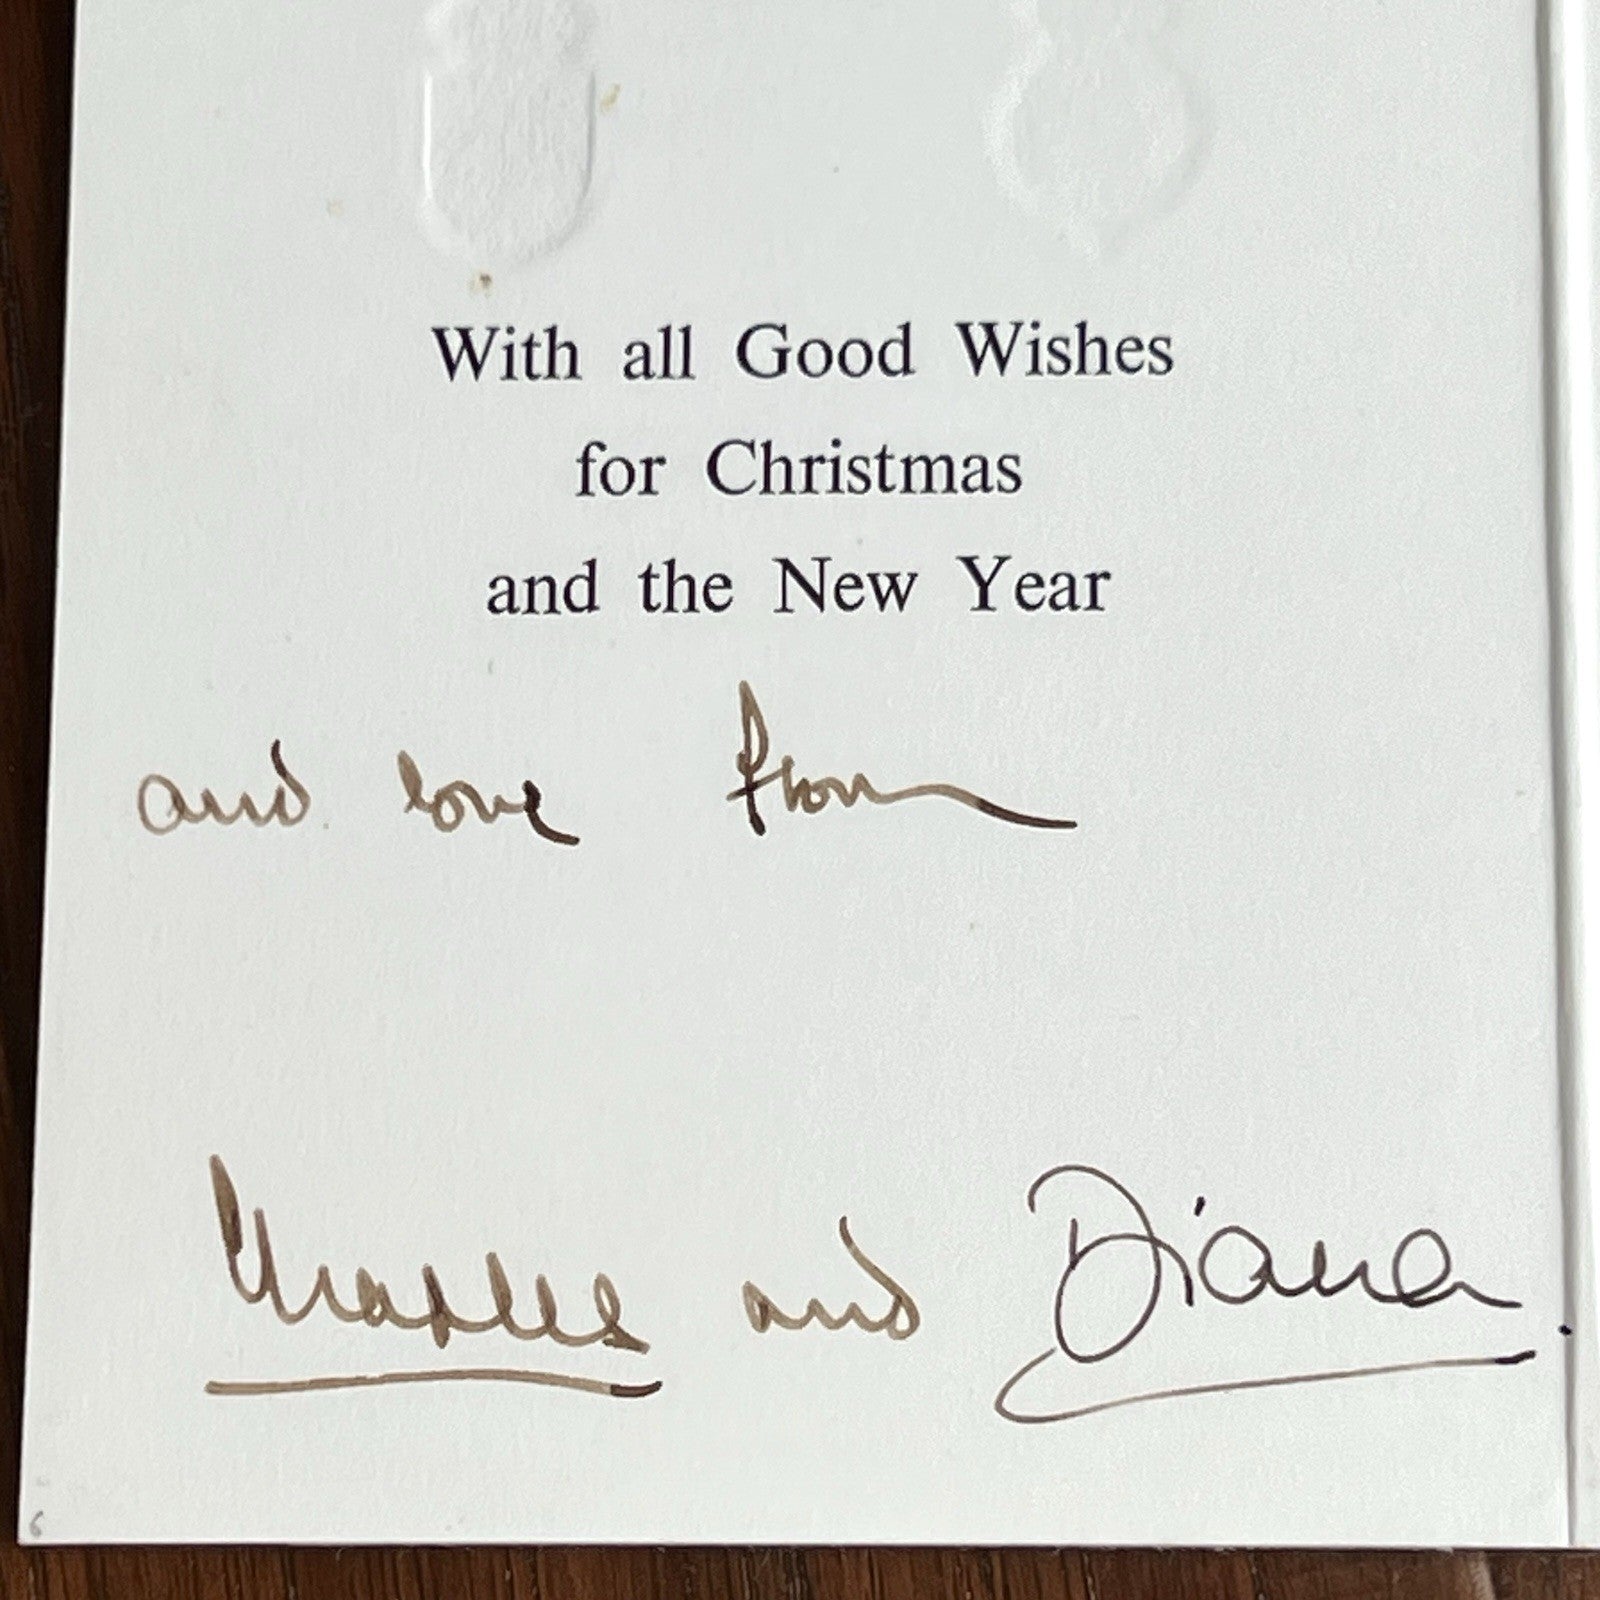 With all Good Wishes
for Christmas
and the New Year
and love from
Charles and Diana
6